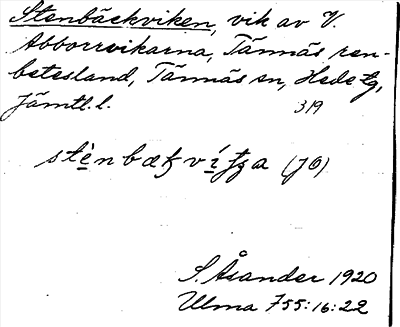 Stenbäckviken, vik av V.
Abborrvikarna, Tännäs ren-
betesland, Tännäs sn, Hede tg,
Jämtl. l.
319
(JÖ)
S. Åsander 1920
Ulma 755:16:22